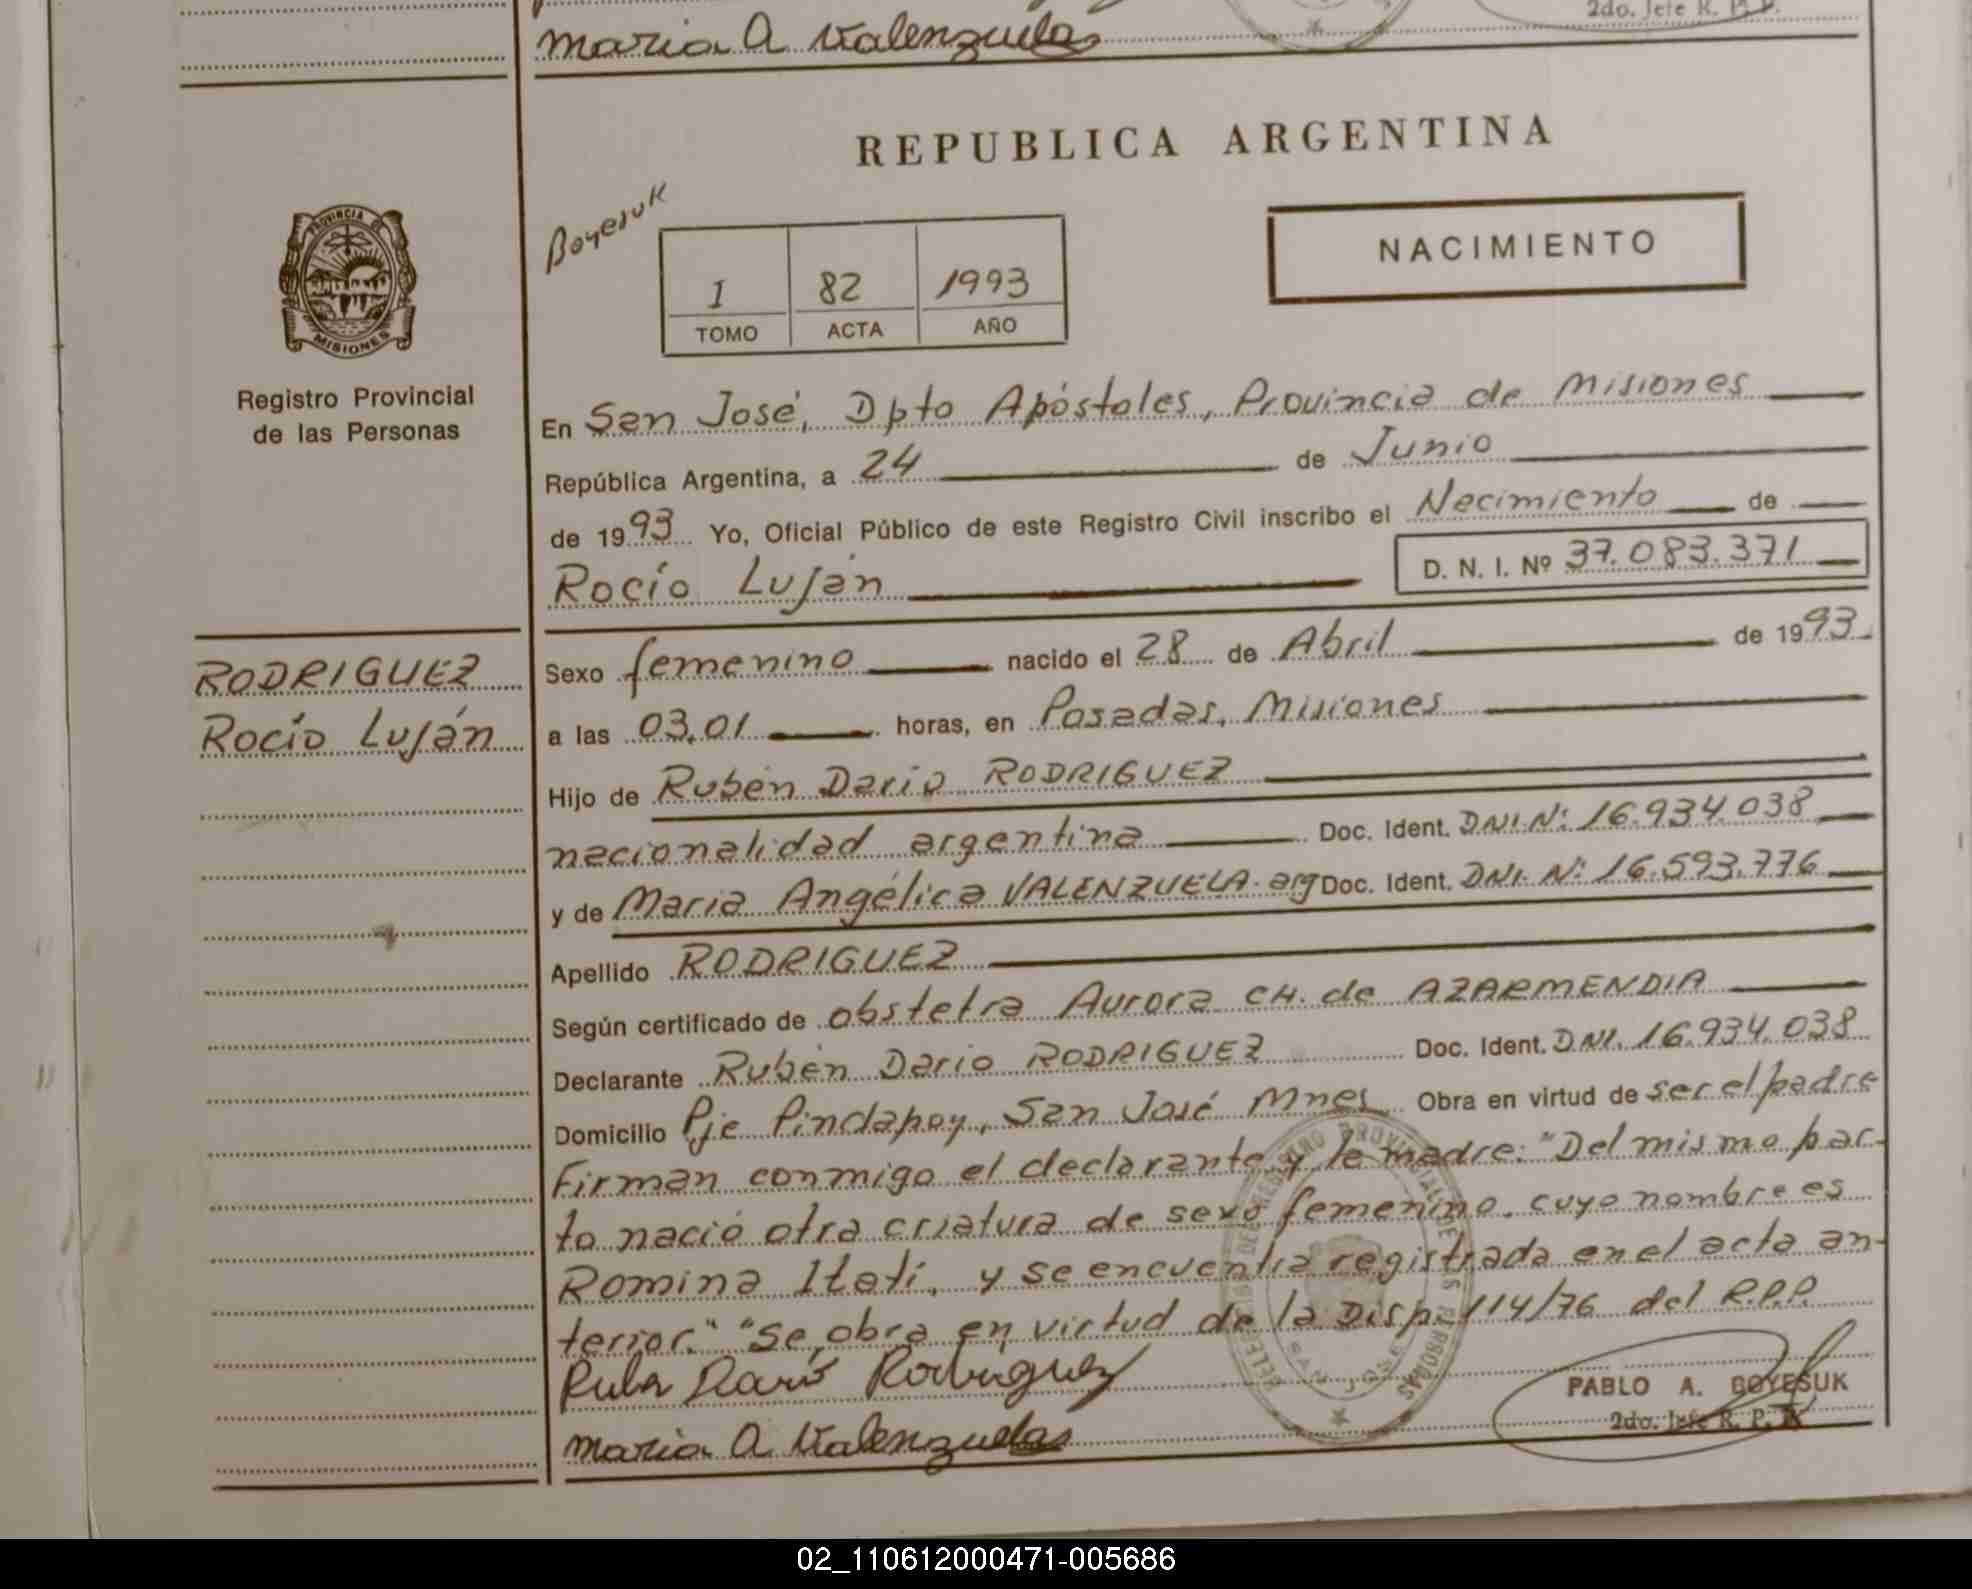 2do. Jefe R. P. P.
Maria A Valenzuela
REPUBLICA ARGENTINA
Boyesuk
NACIMIENTO
I 82 1993
TOMO ACTA AÑO
PROVINCIA DE MISIONES
Registro Provincial
de las Personas
En San José, Dpto Apóstoles, Provincia de Misiones
República Argentina, a 24 de Junio
de 1993 Yo, Oficial Público de este Registro Civil inscribo el Nacimiento de
Rocío Luján D. N. I. Nº 37.083.371
RODRIGUEZ
Rocío Luján
Sexo femenino nacido el 28 de Abril de 1993
a las 03,01 horas, en Posadas, Misiones
Hijo de Rubén Darío RODRIGUEZ
nacionalidad argentina Doc. Ident. DNI.Nº: 16.934.038
y de María Angélica VALENZUELA. arg Doc. Ident. DNI. Nº: 16.593.776
Apellido RODRIGUEZ
Según certificado de obstetra Aurora CH. de AZARMENDIA
Declarante Rubén Darío RODRIGUEZ Doc. Ident. DNI. 16.934.038
Domicilio Pje Pindapoy, San José Mnes Obra en virtud de ser el padre
Firman conmigo el declarante y la madre: "Del mismo par-
to nació otra criatura de sexo femenino, cuyo nombre es
Romina Itatí, y se encuentra registrada en el acta an-
terior." "Se obra en virtud de la Disp. 114/76 del R.P.P.
Ruben Dario Rodriguez
Maria A Valenzuela
PABLO A. BOYESUK
2do. Jefe R. P. P.
02_110612000471-005686